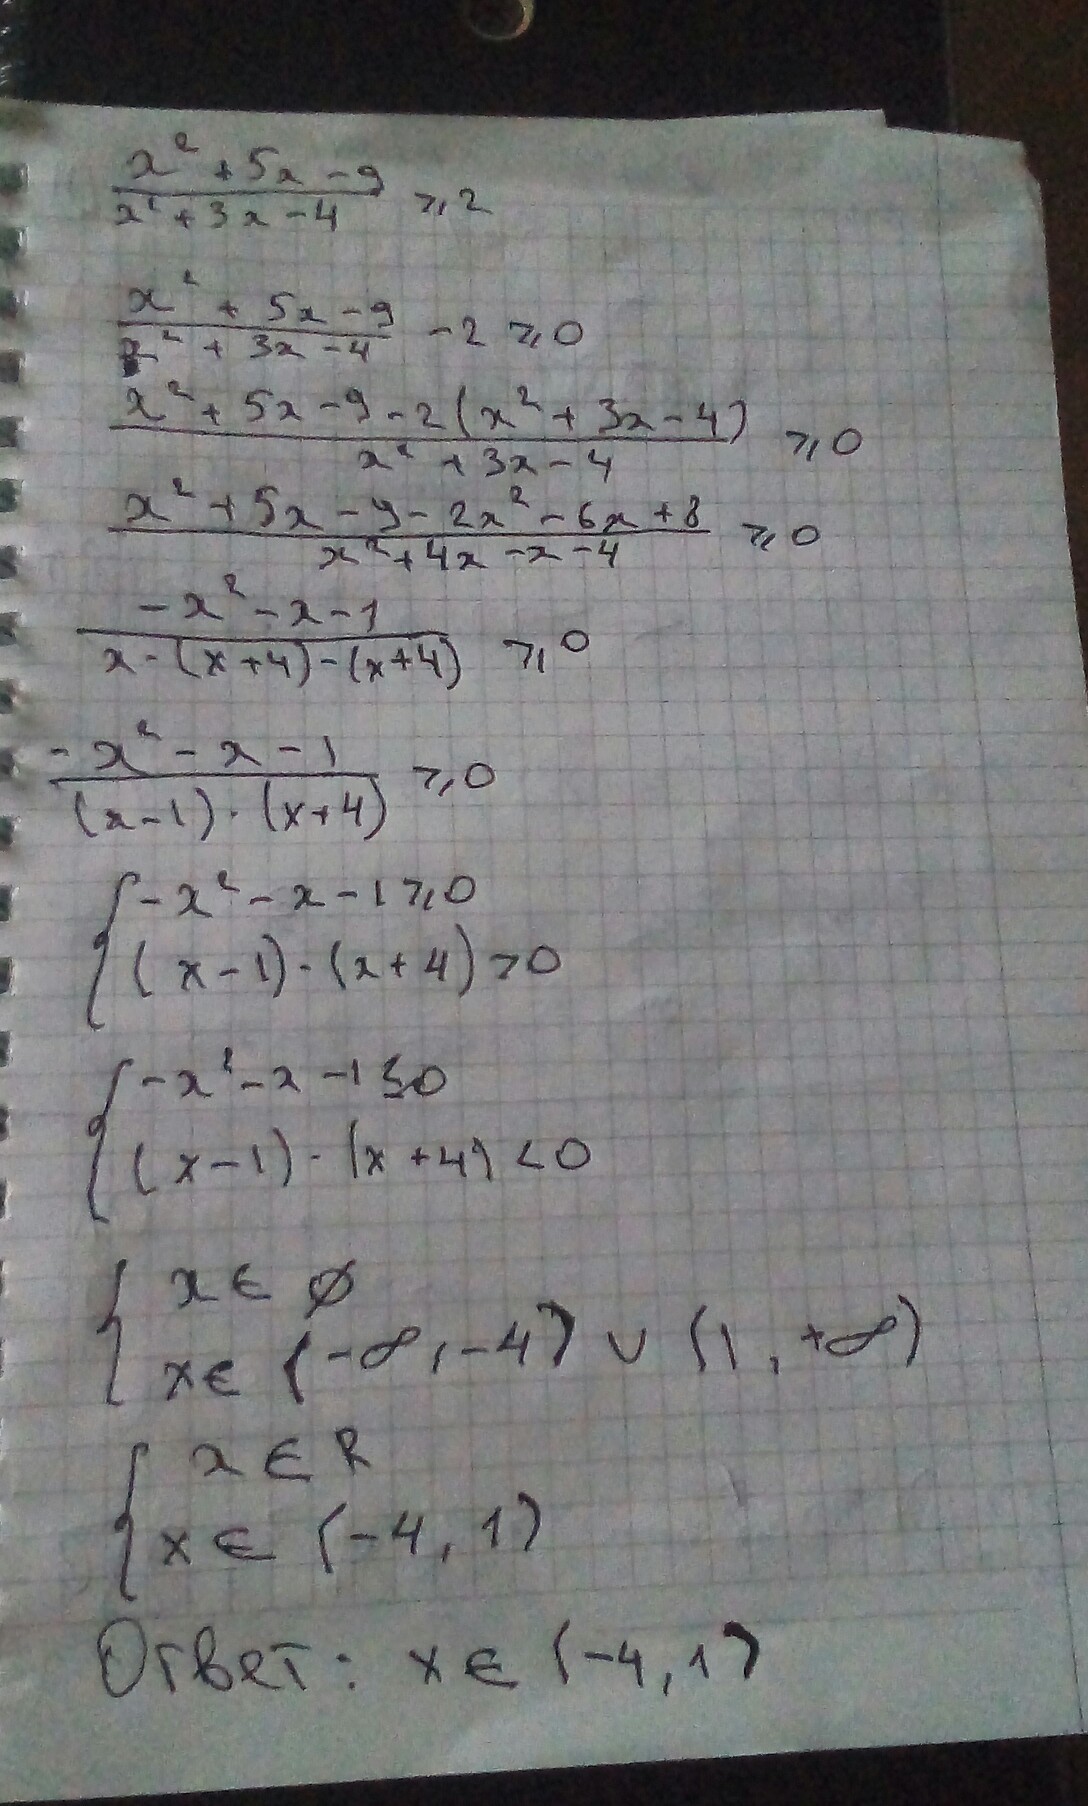 x² + 5x - 9 / x² + 3x - 4 ⩾ 2
x² + 5x - 9 / x² + 3x - 4 - 2 ⩾ 0
x² + 5x - 9 - 2(x² + 3x - 4) / x² + 3x - 4 ⩾ 0
x² + 5x - 9 - 2x² - 6x + 8 / x² + 4x - x - 4 ⩾ 0
-x² - x - 1 / x - (x+4) - (x+4) ⩾ 0
-x² - x - 1 / (x-1) · (x+4) ⩾ 0
{ -x² - x - 1 ⩾ 0
(x-1) · (x+4) > 0
{ -x² - x - 1 ≤ 0
(x-1) · (x+4) < 0
{ x ∈ ∅
x ∈ (-∞, -4) ∪ (1, +∞)
{ x ∈ R
x ∈ (-4, 1)
Ответ: x ∈ (-4, 1)